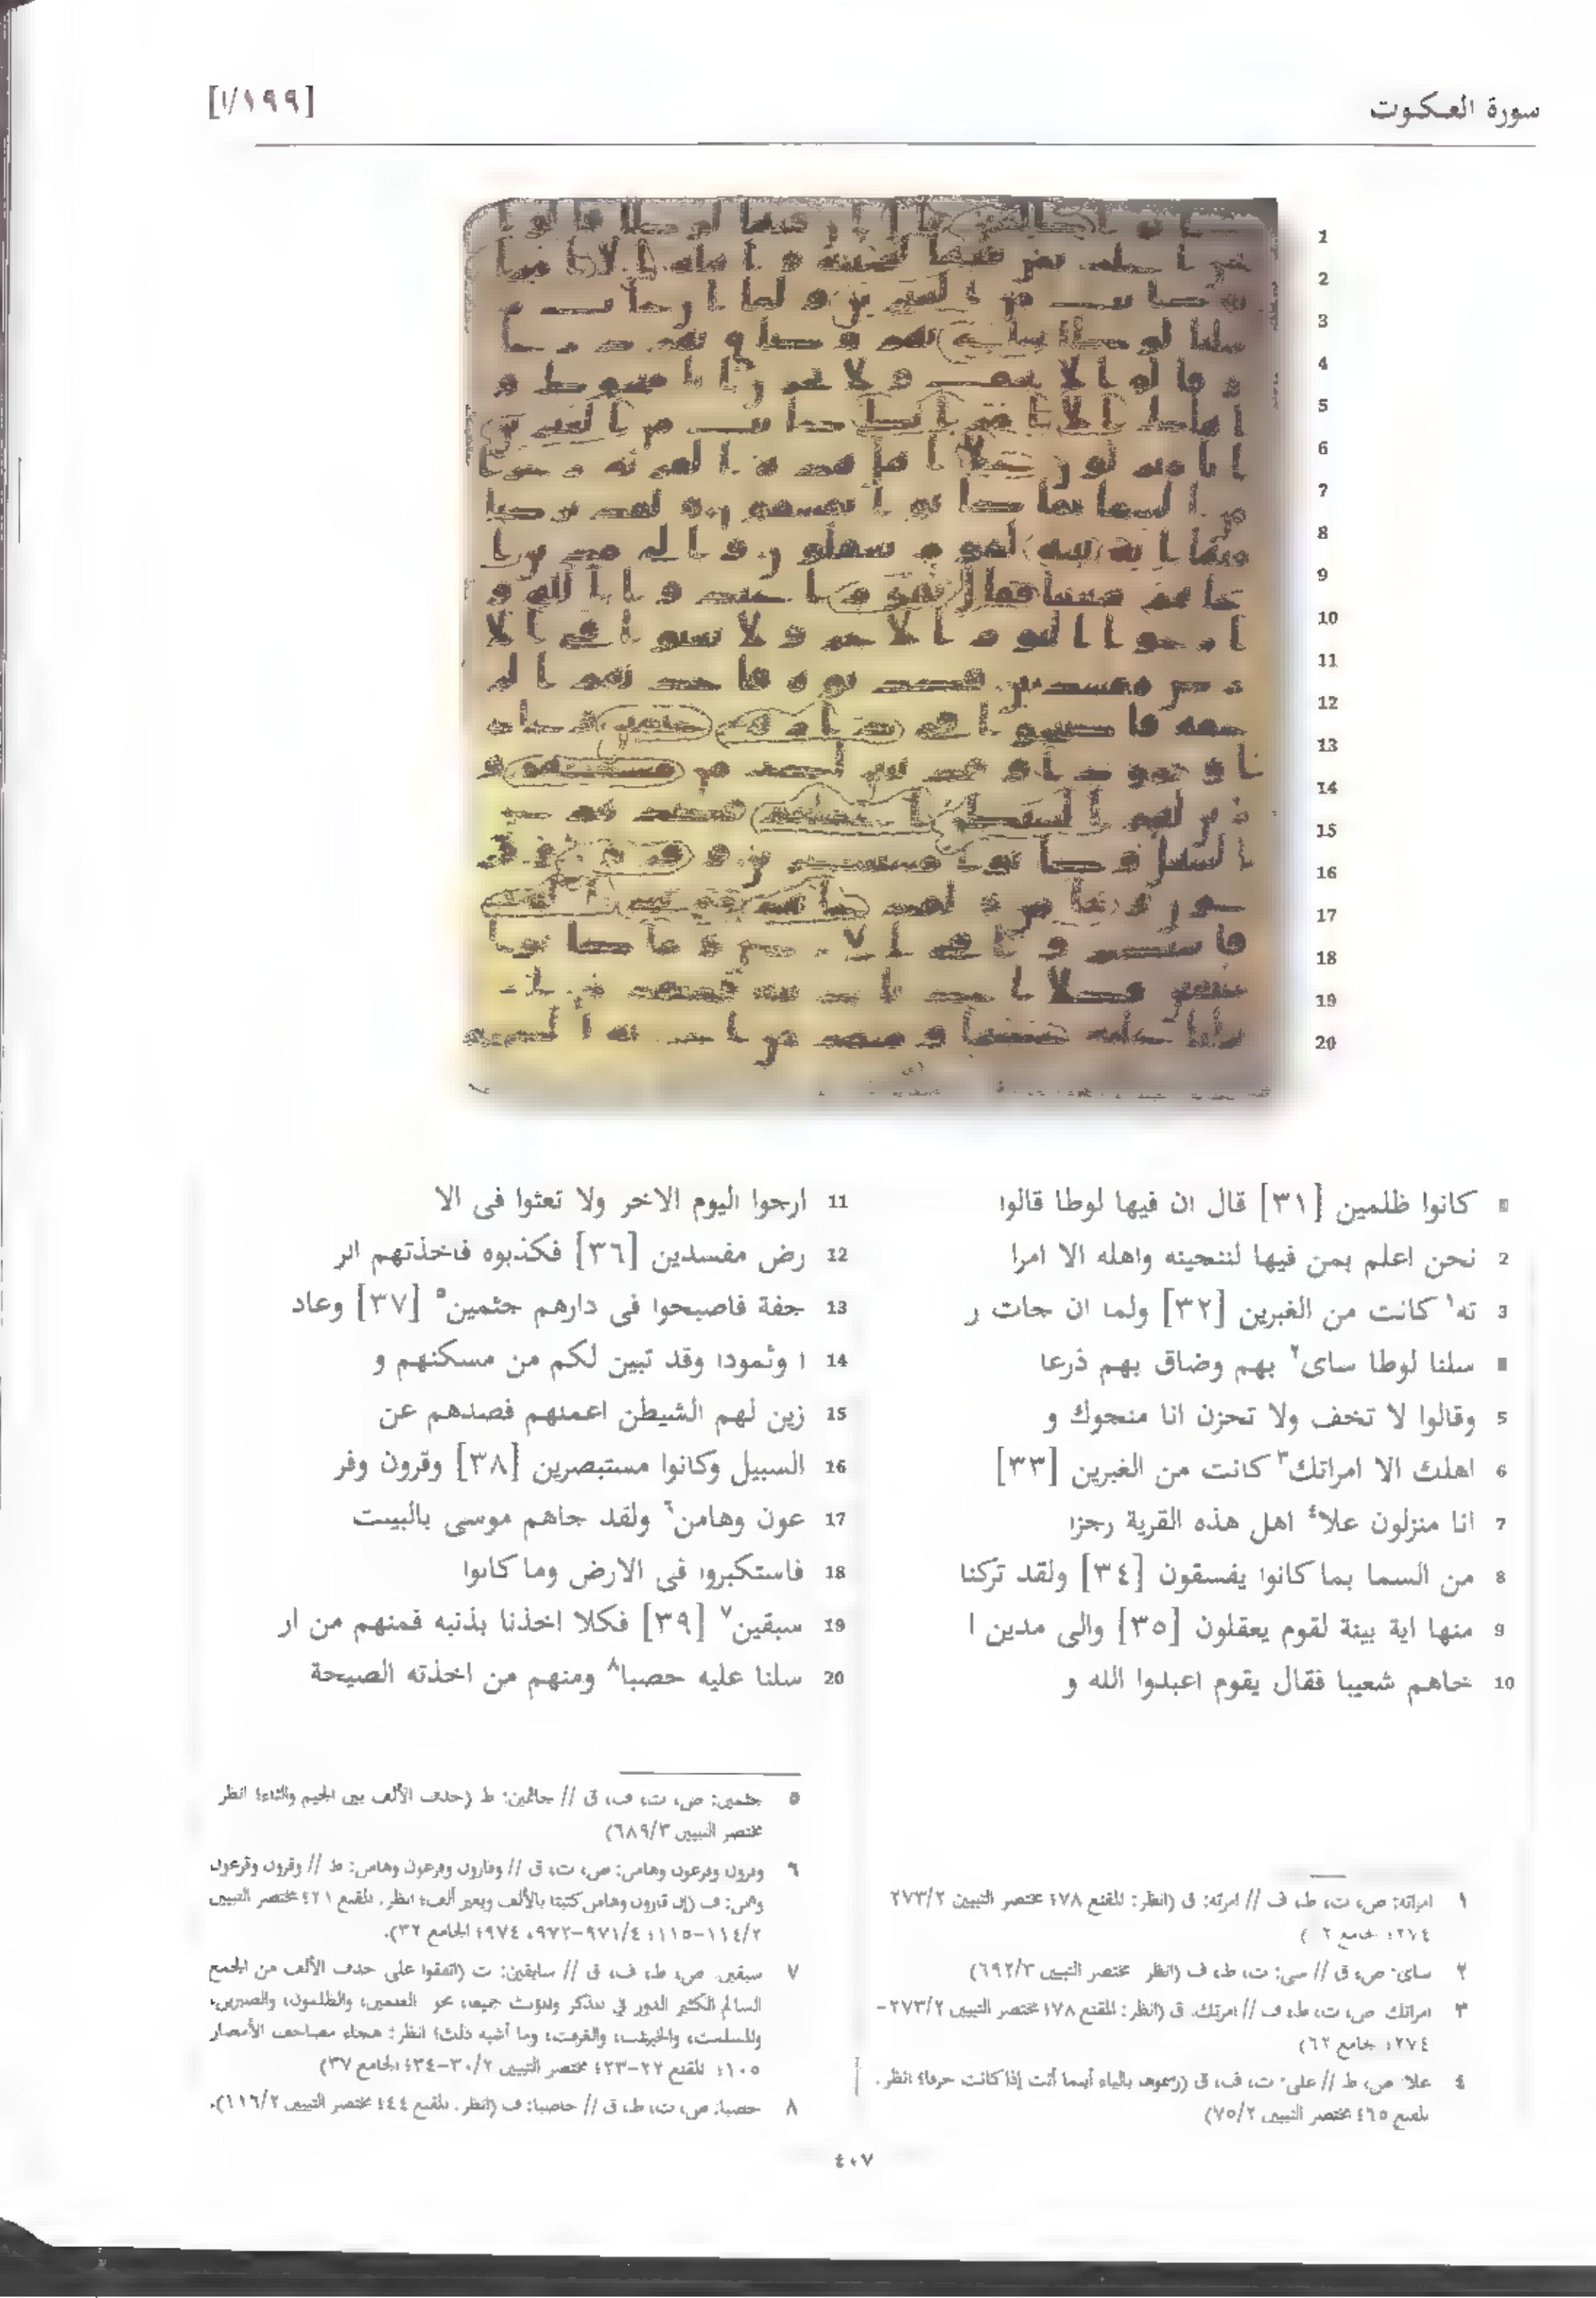 سورة العكبوت
[١٩٩/ا]
1
2
3
4
5
6
7
8
9
10
11
12
13
14
15
16
17
18
19
20
كانوا ظلمين [٣١] قال ان فيها لوطا قالوا
2 نحن اعلم بمن فيها لننجينه واهله الا امرا
3 ته١ كانت من الغبرين [٣٢] ولما ان جات ر
سلنا لوطا ساى٢ بهم وضاق بهم ذرعا
5 وقالوا لا تخف ولا تحزن انا منجوك و
6 اهلك الا امراتك٣ كانت من الغبرين [٣٣]
7 انا منزلون علا٤ اهل هذه القرية رجزا
8 من السما بما كانوا يفسقون [٣٤] ولقد تركنا
9 منها اية بينة لقوم يعقلون [٣٥] والى مدين ا
10 خاهم شعيبا فقال يقوم اعبدوا الله و
11 ارجوا اليوم الاخر ولا تعثوا فى الا
12 رض مفسدين [٣٦] فكذبوه فاخذتهم الر
13 جفة فاصبحوا فى دارهم جثمين٥ [٣٧] وعاد
14 ا وثمودا وقد تبين لكم من مسكنهم و
15 زين لهم الشيطن اعمنهم فصدهم عن
16 السبيل وكانوا مستبصرين [٣٨] وقرون وفر
17 عون وهامن٦ ولقد جاهم موسى بالبينت
18 فاستكبروا فى الارض وما كانوا
19 سبقين٧ [٣٩] فكلا اخذنا بذنبه فمنهم من ار
20 سلنا عليه حصبا٨ ومنهم من اخذته الصيحة
١ امراته: ص، ت، ط، ف // امرته: ق (انظر: المقنع ٧٨؛ مختصر التبيين ٢٧٣/٢
٢٧٤؛
٢ ساى: ص، ق // سى: ت، ط، ف (انظر مختصر التبيين ٦٩٢/٣)
٣ امراتك: ص، ت، ط، ف // امرتك: ق (انظر: المقنع ٧٨؛ مختصر التبيين ٢٧٣/٢-
٢٧٤؛ جامع ٦٢)
٤ علا: ص، ط // على: ت، ف، ق (رسموه بالياء أينما أتت إذا كانت حرفا؛ انظر:
المقنع ٦٥؛ مختصر التبيين ٧٥/٢)
٥ جثمين: ص، ت، ف، ق // جاثمين: ط (حذف الألف بين الجيم والثاء؛ انظر
مختصر التبيين ٦٨٩/٣)
٦ وقرون وفرعون وهامن: ص، ت، ق // وقارون وفرعون وهامن: ط // وقرون وفرعون
وهمن: ف (إن قرون وهامن كتبتا بالألف وبغير ألف؛ انظر: المقنع ٢١؛ مختصر التبيين
١١٤/٢-١١٥؛ ٩٧١/٤-٩٧٢، ٩٧٤؛ الجامع ٣٢).
٧ سبقين: ص، ط، ف، ق // سابقين: ت (اتفقوا على حذف الألف من الجمع
السالم الكثير الدور في المذكر والمؤنث جميعا، نحو العلمين، والظلمون، والصبرين،
والمسلمت، والخبيثت، والغرفت، وما أشبه ذلك؛ انظر: هجاء مصاحف الأمصار
١٠٥؛ المقنع ٢٢-٢٣؛ مختصر التبيين ٣٠/٢-٣٤؛ الجامع ٣٧)
٨ حصبا: ص، ت، ط، ق // حاصبا: ف (انظر: المقنع ٤٤؛ مختصر التبيين ١١٦/٢).
٤٠٧